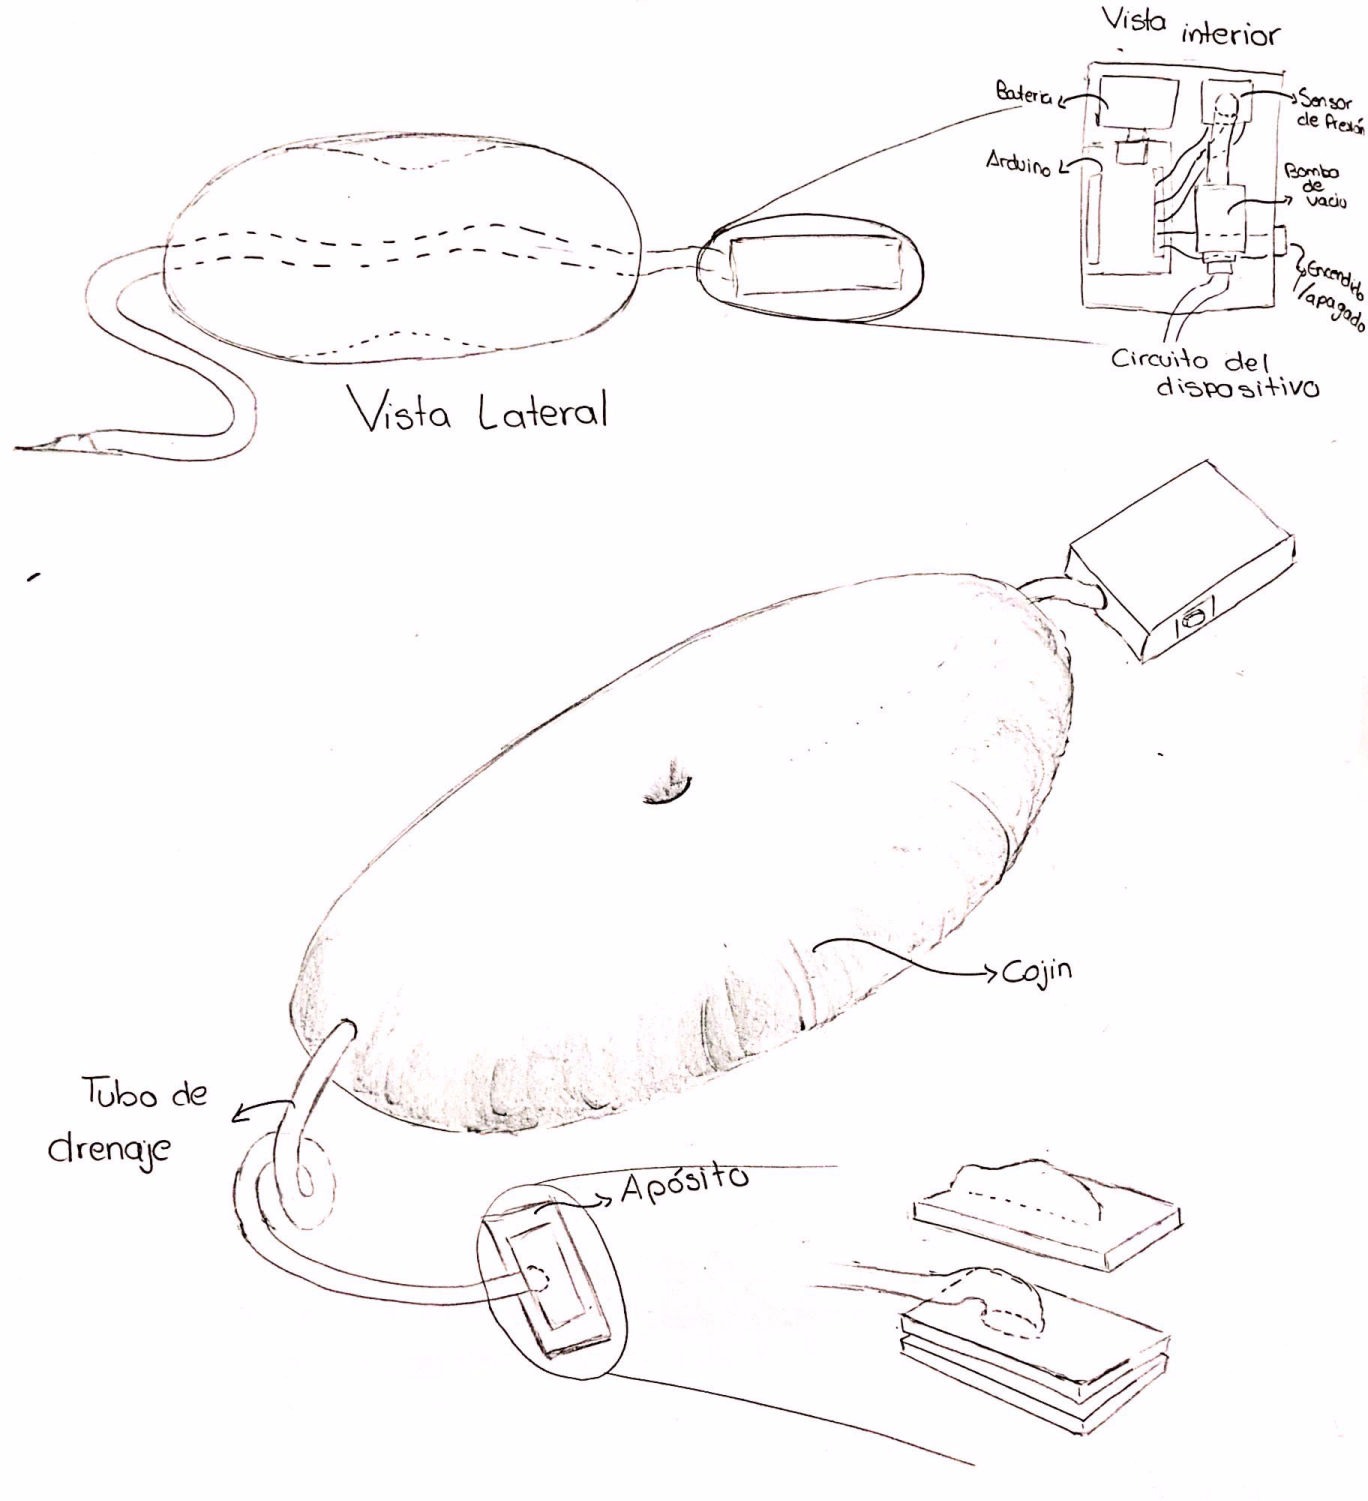 Vista interior
Bateria
Sensor
de Presión
Arduino
Bomba
de
vacio
Encendido
/apagado
Circuito del
dispositivo
Vista Lateral
Cojin
Tubo de
drenaje
Apósito